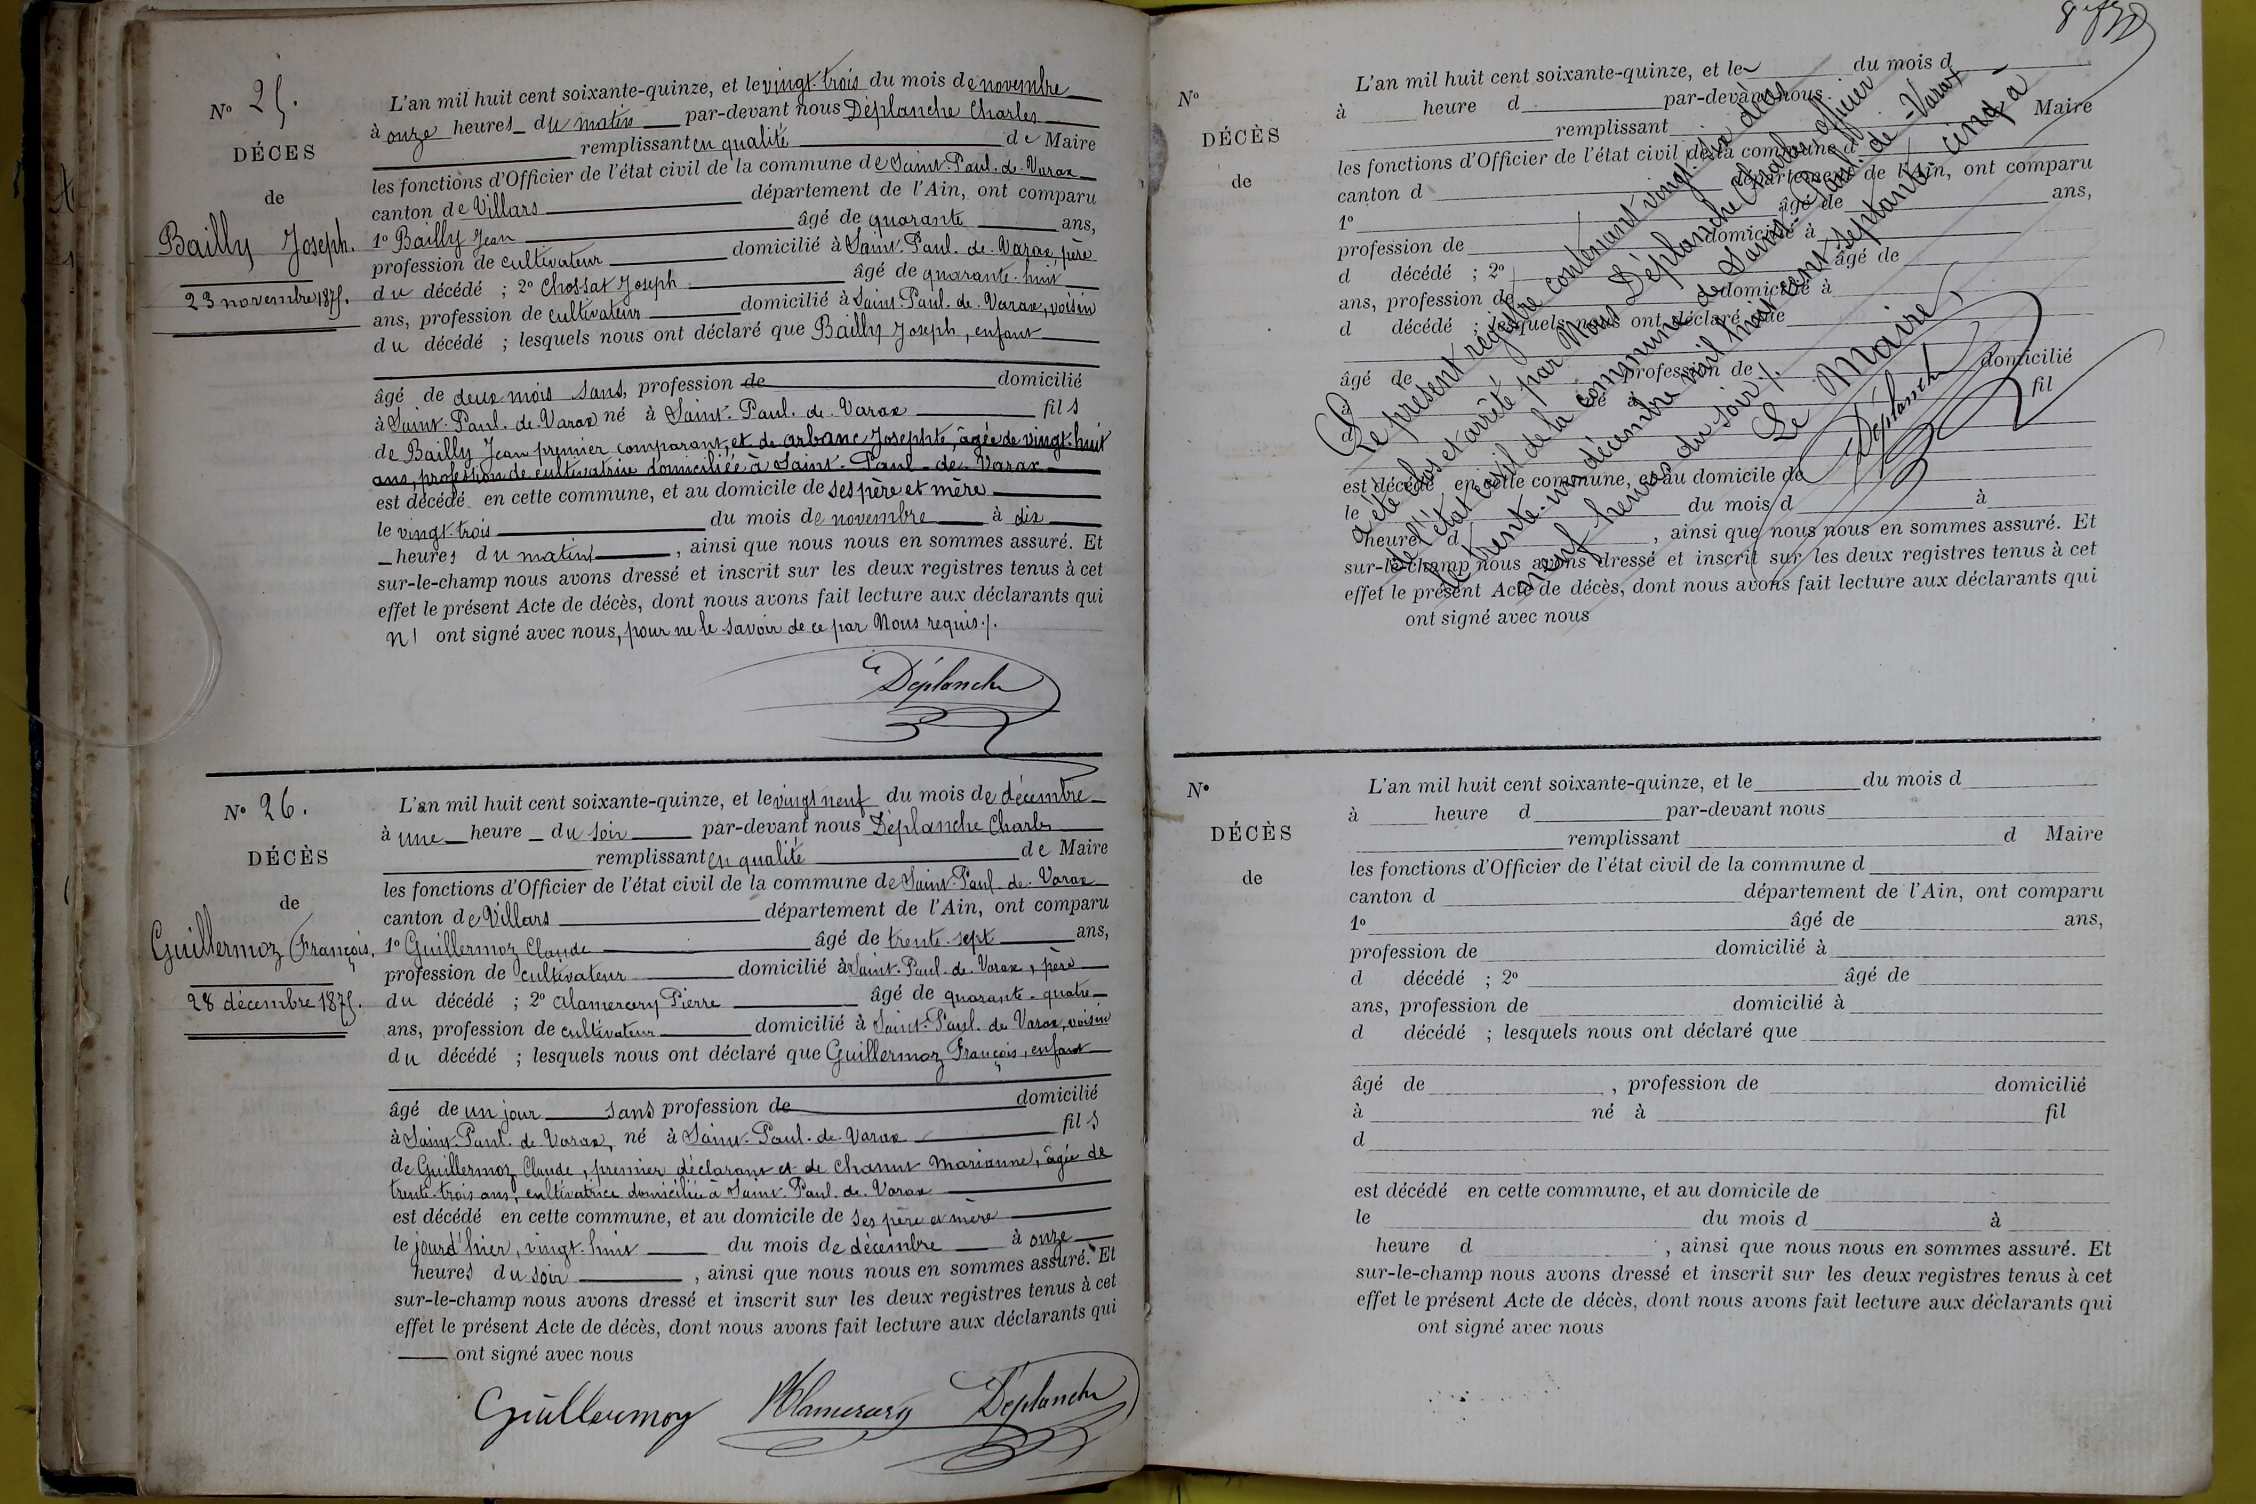 N° 25.
DÉCES
de
Bailly Joseph.
23 novembre 1875.
L'an mil huit cent soixante-quinze, et le vingt-trois du mois de novembre
à onze heures du matin par-devant nous Déplanche Charles
remplissant en qualité de Maire
les fonctions d'Officier de l'état civil de la commune de Saint-Paul-de-Varax
canton de Villars département de l'Ain, ont comparu
1° Bailly Jean âgé de quarante ans,
profession de cultivateur domicilié à Saint-Paul-de-Varax, père
du décédé ; 2° Chossat Joseph âgé de quarante-huit
ans, profession de cultivateur domicilié à Saint-Paul-de-Varax, voisin
du décédé ; lesquels nous ont déclaré que Bailly Joseph, enfant
âgé de deux mois sans, profession de domicilié
à Saint-Paul-de-Varax né à Saint-Paul-de-Varax fils
de Bailly Jean premier comparant, et de arbanc Josephte, âgée de vingt-huit
ans, profession de cultivatrice domiciliée à Saint-Paul-de-Varax
est décédé en cette commune, et au domicile de ses père et mère
le vingt-trois du mois de novembre à dix
heures du matin, ainsi que nous nous en sommes assuré. Et
sur-le-champ nous avons dressé et inscrit sur les deux registres tenus à cet
effet le présent Acte de décès, dont nous avons fait lecture aux déclarants qui
n' ont signé avec nous, pour ne le savoir de ce par Nous requis ./.
Déplanche
N° 26.
DÉCÈS
de
Guillermoz François.
28 décembre 1875.
L'an mil huit cent soixante-quinze, et le vingt neuf du mois de décembre
à une heure du soir par-devant nous Déplanche Charles
remplissant en qualité de Maire
les fonctions d'Officier de l'état civil de la commune de Saint-Paul-de-Varax
canton de Villars département de l'Ain, ont comparu
1° Guillermoz Claude âgé de trente-sept ans,
profession de cultivateur domicilié à Saint-Paul-de-Varax, père
du décédé ; 2° Alamercery Pierre âgé de quarante-quatre
ans, profession de cultivateur domicilié à Saint-Paul-de-Varax, voisin
du décédé ; lesquels nous ont déclaré que Guillermoz François, enfant
âgé de un jour sans profession de domicilié
à Saint-Paul-de-Varax, né à Saint-Paul-de-Varax fils
de Guillermoz Claude, premier déclarant et de Chanut Marianne, âgée de
trente-trois ans, cultivatrice domiciliée à Saint-Paul-de-Varax
est décédé en cette commune, et au domicile de ses père et mère
le jourd'hier, vingt-huit du mois de décembre à onze
heures du soir, ainsi que nous nous en sommes assuré. Et
sur-le-champ nous avons dressé et inscrit sur les deux registres tenus à cet
effet le présent Acte de décès, dont nous avons fait lecture aux déclarants qui
ont signé avec nous
Guillermoz Alamercery Déplanche
N°
DÉCÈS
de
L'an mil huit cent soixante-quinze, et le du mois d
à heure d par-devant nous
remplissant Maire
les fonctions d'Officier de l'état civil de la commune d
canton d département de l'Ain, ont comparu
1° âgé de ans,
profession de domicilié à
d décédé ; 2° âgé de
ans, profession de domicilié à
d décédé ; lesquels nous ont déclaré que
âgé de profession de domicilié
à né à fil
d
est décédé en cette commune, et au domicile de
le du mois d à
heure d , ainsi que nous nous en sommes assuré. Et
sur-le-champ nous avons dressé et inscrit sur les deux registres tenus à cet
effet le présent Acte de décès, dont nous avons fait lecture aux déclarants qui
ont signé avec nous
Le présent registre contenant vingt-six décès
a été clos et arrêté par Nous Déplanche Charles, officier
de l'état civil de la commune de Saint-Paul-de-Varax
le trente-un décembre mil huit cent septante-cinq à
neuf heures du soir ./.
Le Maire
Déplanche
N°
DÉCÈS
de
L'an mil huit cent soixante-quinze, et le du mois d
à heure d par-devant nous
remplissant d Maire
les fonctions d'Officier de l'état civil de la commune d
canton d département de l'Ain, ont comparu
1° âgé de ans,
profession de domicilié à
d décédé ; 2° âgé de
ans, profession de domicilié à
d décédé ; lesquels nous ont déclaré que
âgé de , profession de domicilié
à né à fil
d
est décédé en cette commune, et au domicile de
le du mois d à
heure d , ainsi que nous nous en sommes assuré. Et
sur-le-champ nous avons dressé et inscrit sur les deux registres tenus à cet
effet le présent Acte de décès, dont nous avons fait lecture aux déclarants qui
ont signé avec nous